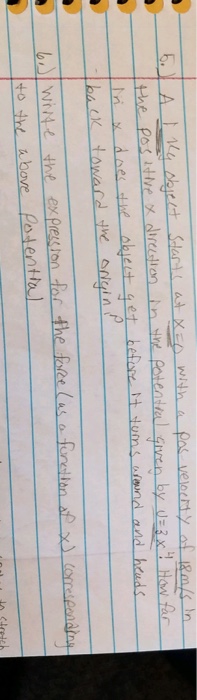 5.) A 1 Kg object starts at x=0 with a pos velocity of 18m/s in
the positive x direction in the potential given by U=3x⁴. How far
in x does the object get before it turns around and heads
back toward the origin?
6.) Write the expression for the force (as a function of x) corresponding
to the above potential